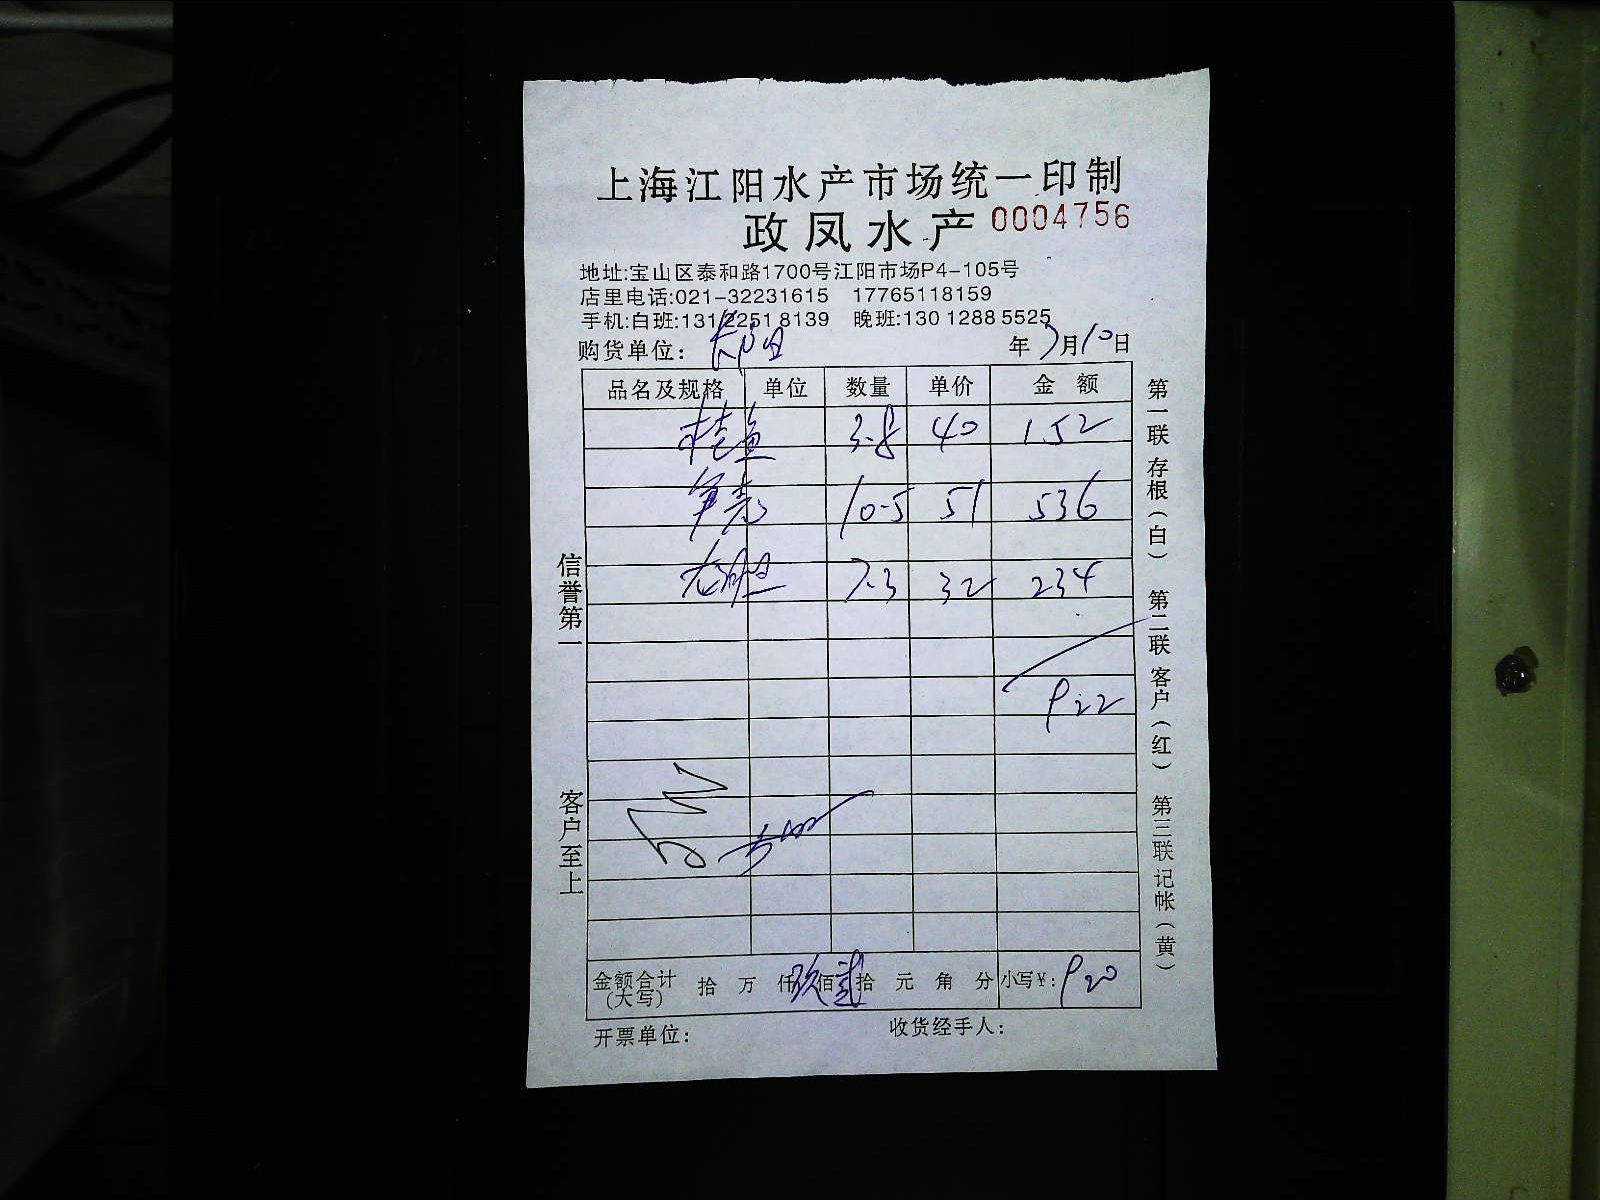 上海江阳水产市场统一印制
政凤水产 0004756
地址:宝山区泰和路1700号江阳市场P4-105号
店里电话:021-32231615 17765118159
手机:白班:131 2251 8139 晚班:130 1288 5525
购货单位: 年 7月10日
品名及规格 单位 数量 单价 金额
桂鱼 3.8 40 152
10.5 51 536
龙胆 7.3 32 234
922
金额合计(大写) 拾 万 仟 玖 佰 贰 拾 元 角 分 小写¥: 920
开票单位: 收货经手人:
信誉第一
客户至上
第一联 存根(白) 第二联 客户(红) 第三联 记帐(黄)